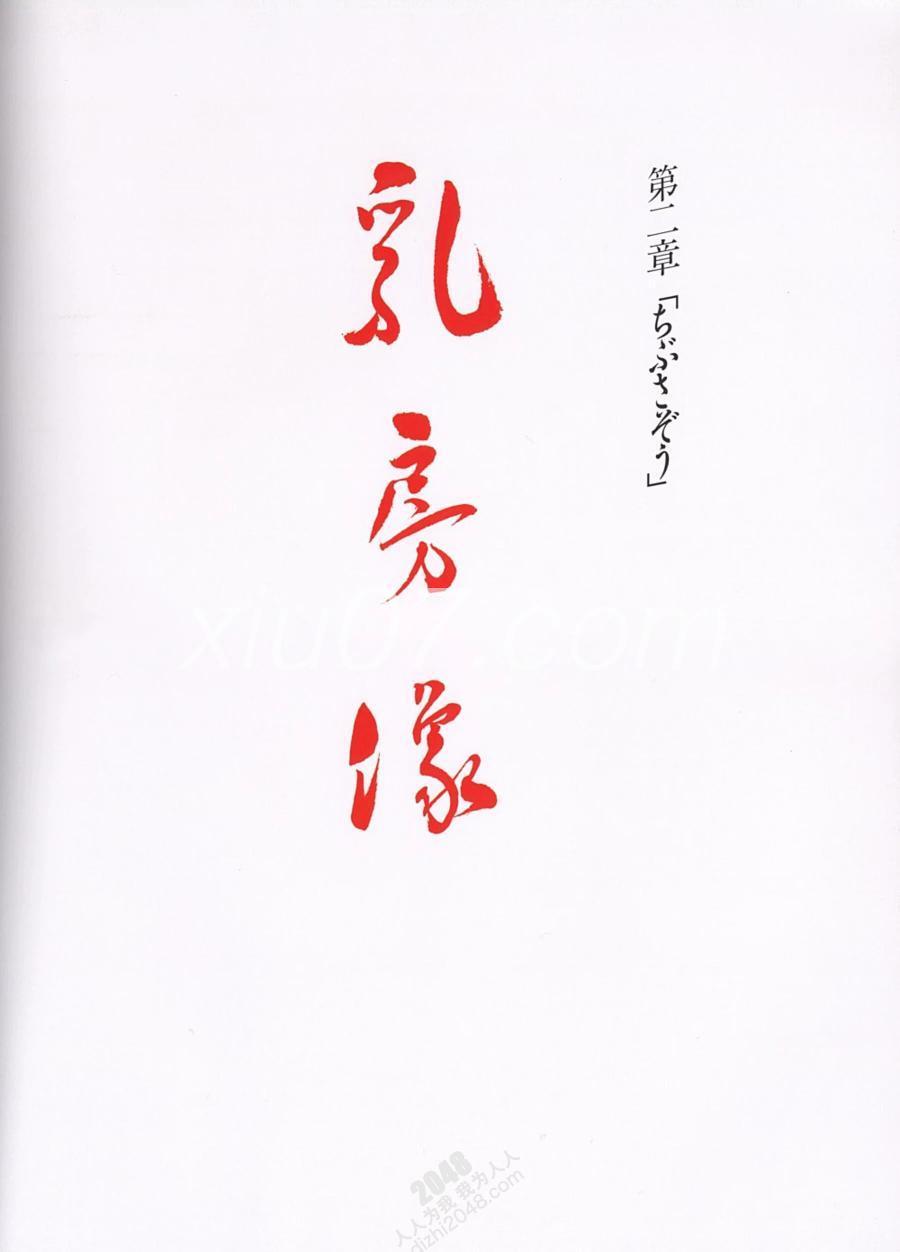 第二章「ちぶさぞう」
乳房像
xiu07.com
2048
人人为我 我为人人
dizhi2048.com